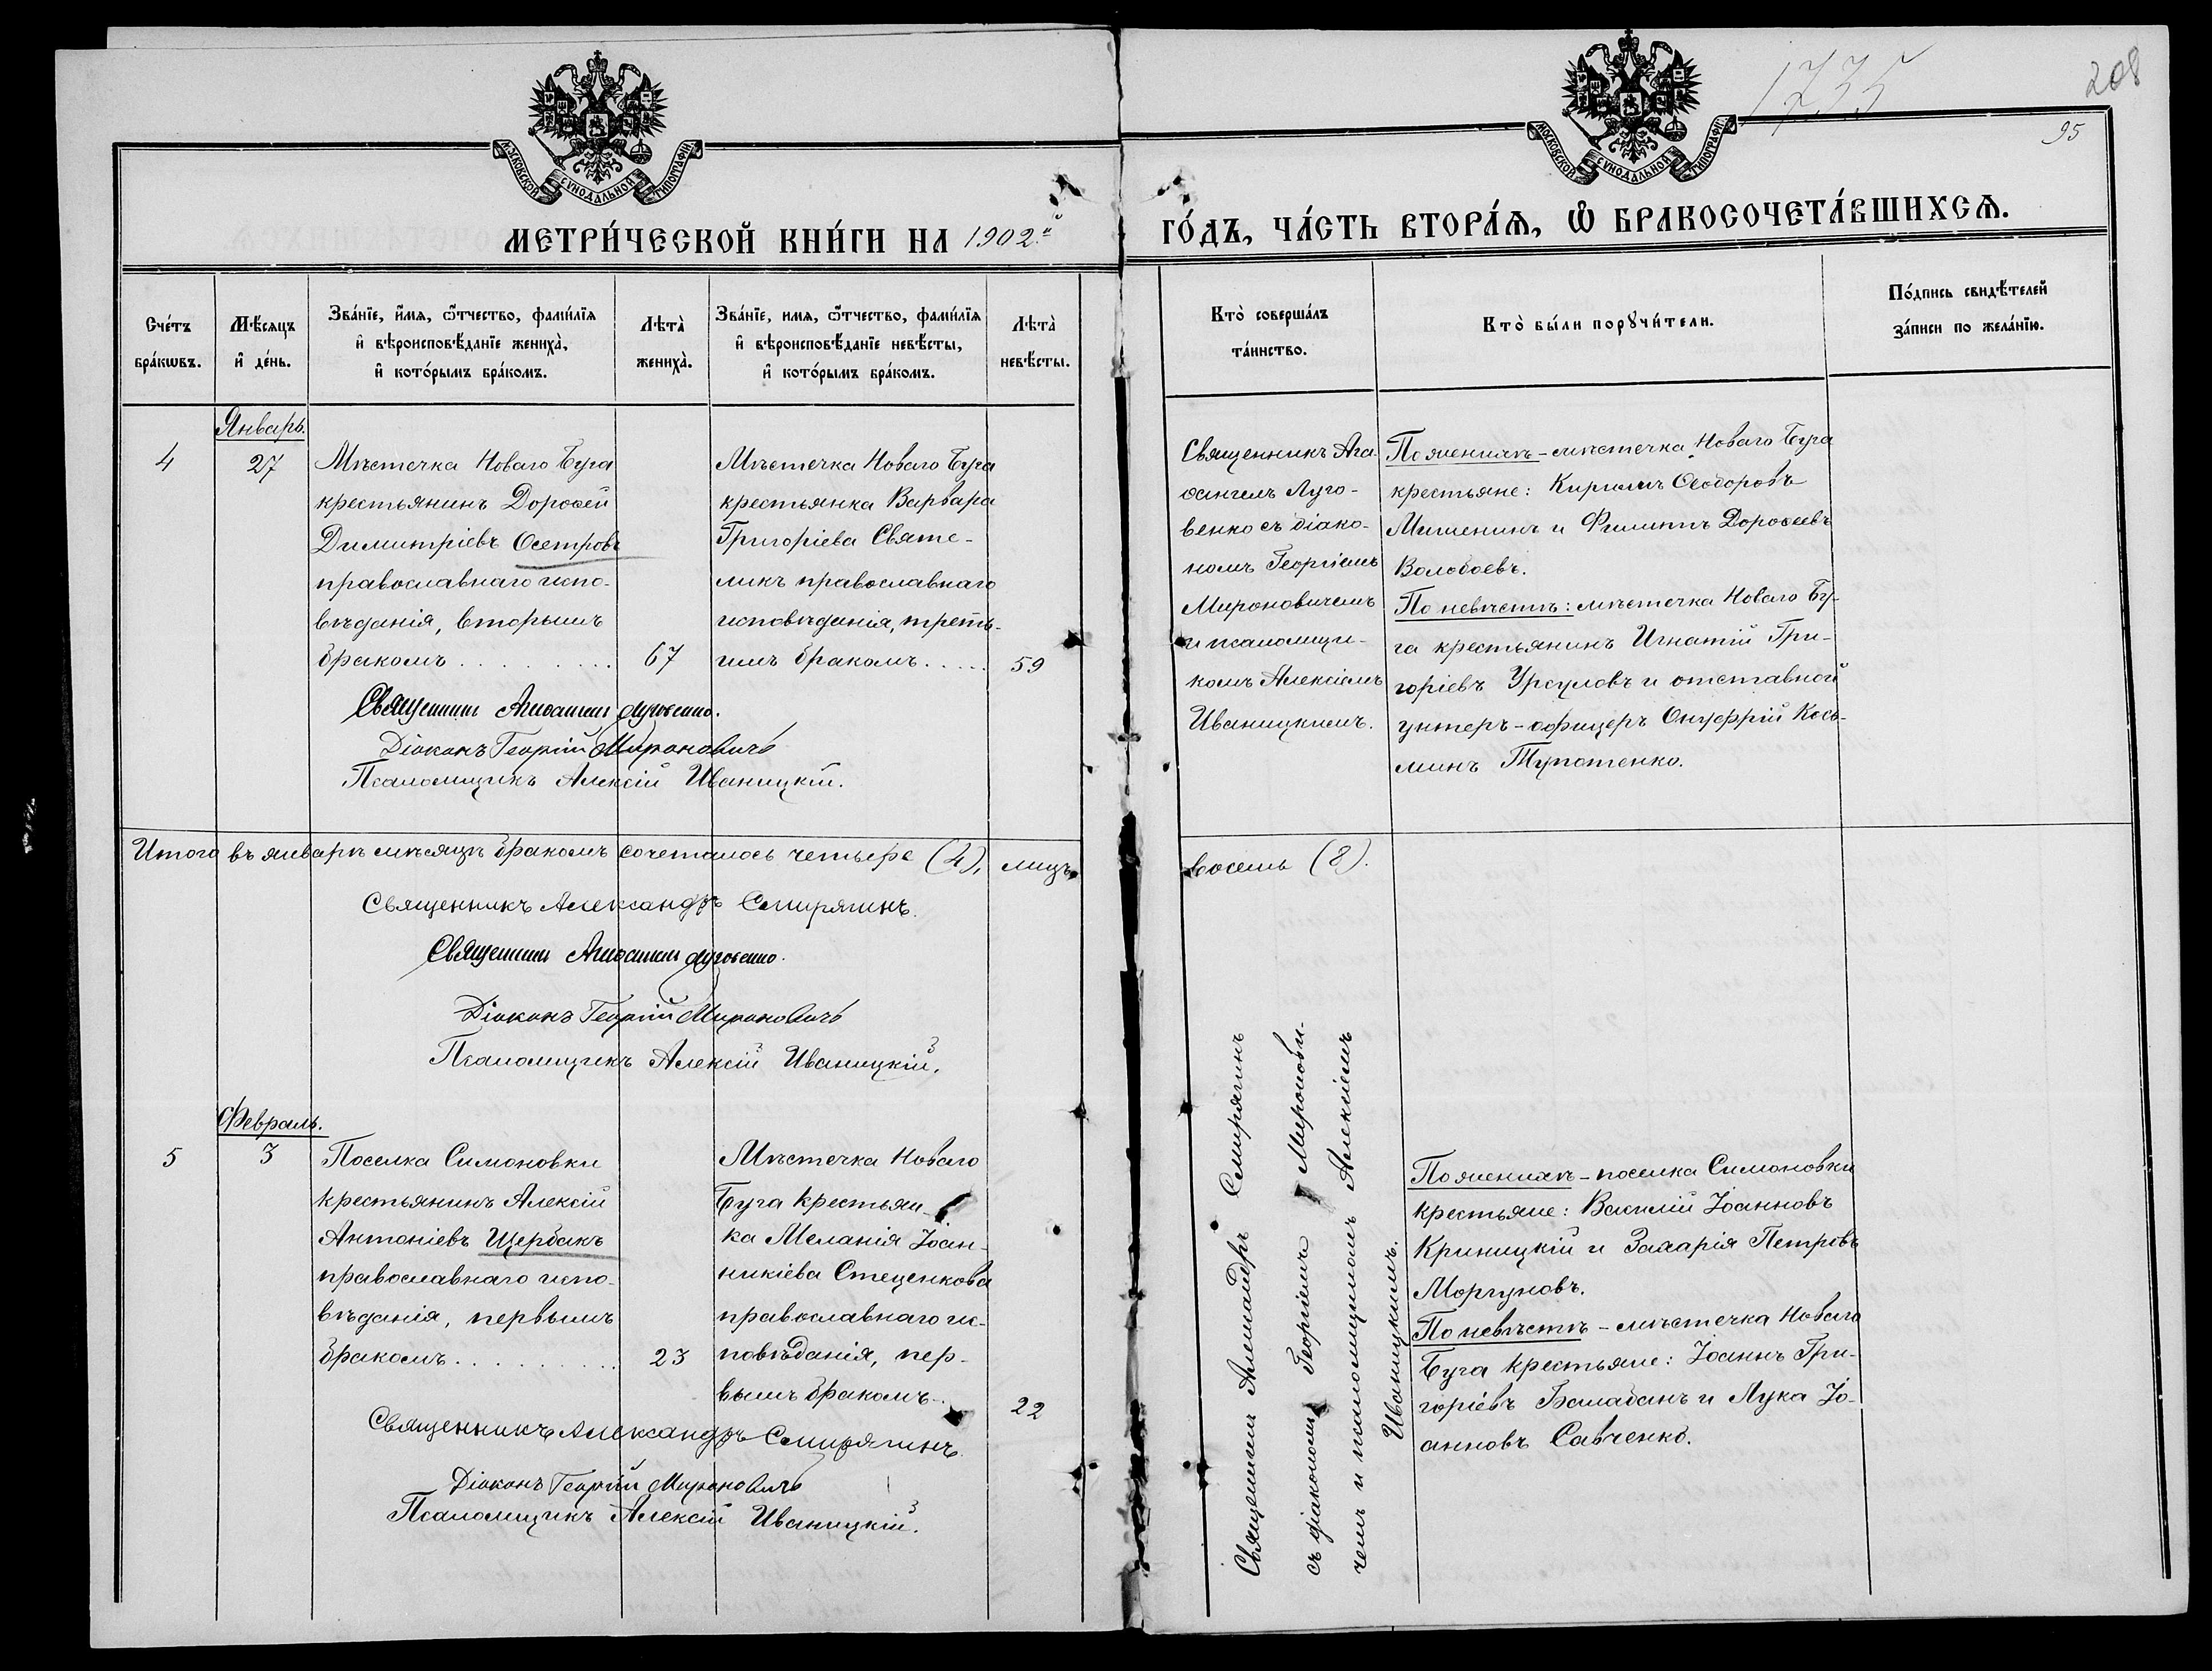 1735
208
95
МОСКОВСКОЙ СУНОДАЛЬНОЙ ТИПОГРАФІИ
МОСКОВСКОЙ СУНОДАЛЬНОЙ ТИПОГРАФІИ
МЕТРИ́ЧЕСКОЙ КНИ́ГИ НА 1902й
ГО́ДЪ, ЧА́СТЬ ВТОРА́Ѧ, Ѽ БРАКОСОЧЕТА́ВШИХСѦ.
Сче́тъ
бра́кѡвъ.
Мѣ́сяцъ
и҆ де́нь.
Зва́нїе, и҆́мя, ѻ҆́тчество, фами́лїя
и҆ вѣроисповѣ́данїе жениха̀,
и҆ кото́рымъ бра́комъ.
Лѣта̀
жениха̀.
Зва́нїе, имя, ѻ҆́тчество, фами́лїя
и҆ вѣроисповѣ́данїе невѣ́сты,
и҆ кото́рымъ бра́комъ.
Лѣта̀
невѣ́сты.
Кто̀ соверша́лъ
та́инство.
Кто̀ бы́ли порꙋчи́тели.
По́дпись свидѣ́телей
за́писи по жела́нїю.
Январь.
4
27
Мѣстечка Новаго Буга
крестьянинъ Дороѳей
Димитріевъ Осетровъ
православнаго испо-
вѣданія, вторымъ
бракомъ . . . . . . . .
67
Мѣстечка Новаго Буга
крестьянка Варвара
Григоріева Святе-
ликъ православнаго
исповѣданія, треть-
имъ бракомъ . . . . .
59
Священникъ Ага-
ѳангелъ Луго-
венко съ діако-
номъ Георгіемъ
Мироновичемъ
и псаломщи-
комъ Алексіемъ
Иваницкимъ.
По женихѣ - мѣстечка Новаго Буга
крестьяне: Кириллъ Ѳеодоровъ
Мишенинъ и Филиппъ Дороѳеевъ
Волобоевъ.
По невѣстѣ: мѣстечка Новаго Бу-
га крестьянинъ Игнатій Гри-
горіевъ Урсуловъ и отставной
унтеръ-офицеръ Онуфрій Кось-
минъ Тупотенко.
Священникъ Агаѳангелъ Луговенко.
Діаконъ Георгій Мироновичъ
Псаломщикъ Алексій Иваницкій.
Итого въ январѣ мѣсяцѣ бракомъ сочеталось четыре (4), лицъ
восемь (8).
Священникъ Александръ Смирягинъ.
Священникъ Агаѳангелъ Луговенко.
Діаконъ Георгій Мироновичъ
Псаломщикъ Алексій Иваницкій.
Февраль.
5
3
Поселка Симоновки
крестьянинъ Алексій
Антоніевъ Щербакъ
православнаго испо-
вѣданія, первымъ
бракомъ . . . . . . . . .
23
Мѣстечка Новаго
Буга крестьян-
ка Меланія Іоан-
никіева Стеценкова
православнаго ис-
повѣданія, пер-
вымъ бракомъ . .
22
Священникъ Александръ Смирягинъ
съ діакономъ Георгіемъ Миронови-
чемъ и псаломщикомъ Алексіемъ
Иваницкимъ.
По женихѣ - поселка Симоновки
крестьяне: Василій Іоанновъ
Криницкій и Захарія Петровъ
Моргуновъ.
По невѣстѣ - мѣстечка Новаго
Буга крестьяне: Іоаннъ Гри-
горіевъ Балабанъ и Лука Іо-
анновъ Савченко.
Священникъ Александръ Смирягинъ.
Діаконъ Георгій Мироновичъ
Псаломщикъ Алексій Иваницкій.